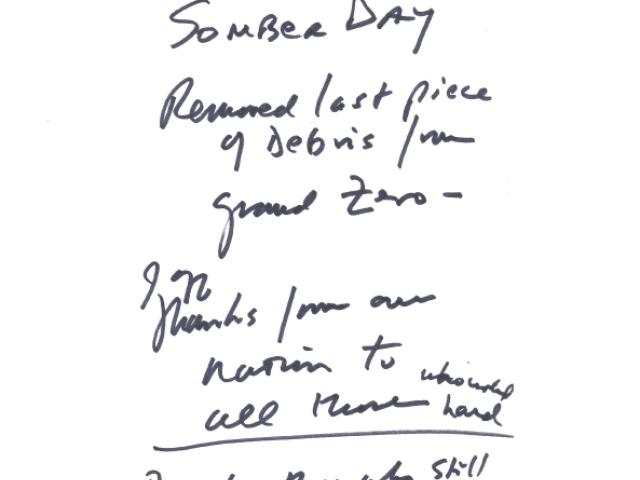 Somber Day
Removed last piece
of Debris from
ground Zero -
Thanks from our
nation to
all those who worked hard
still